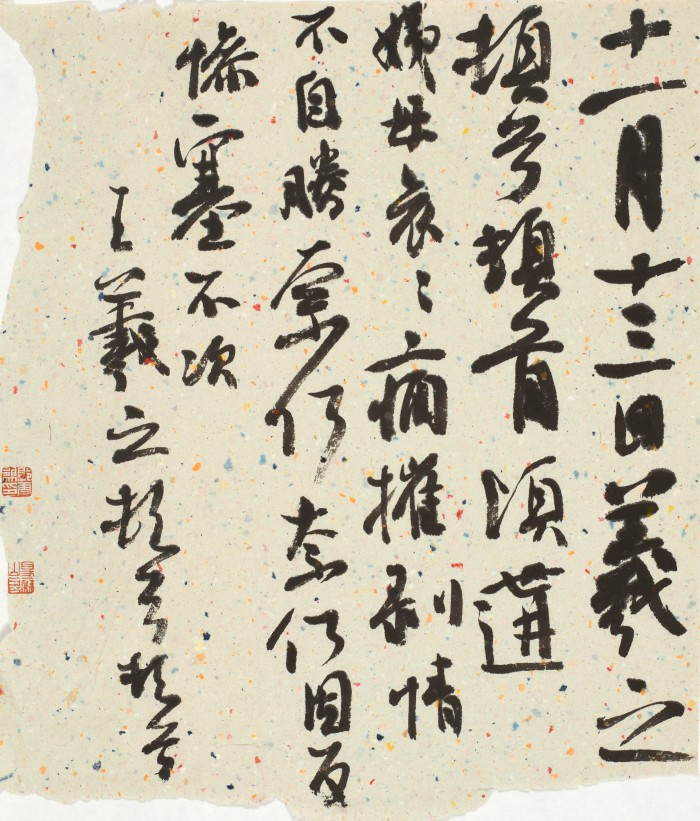 十一月十三日羲之
頓首頓首頃遘
姨母哀〻痛摧剝情
不自勝奈何奈何因反
慘塞不次
王羲之頓首頓首